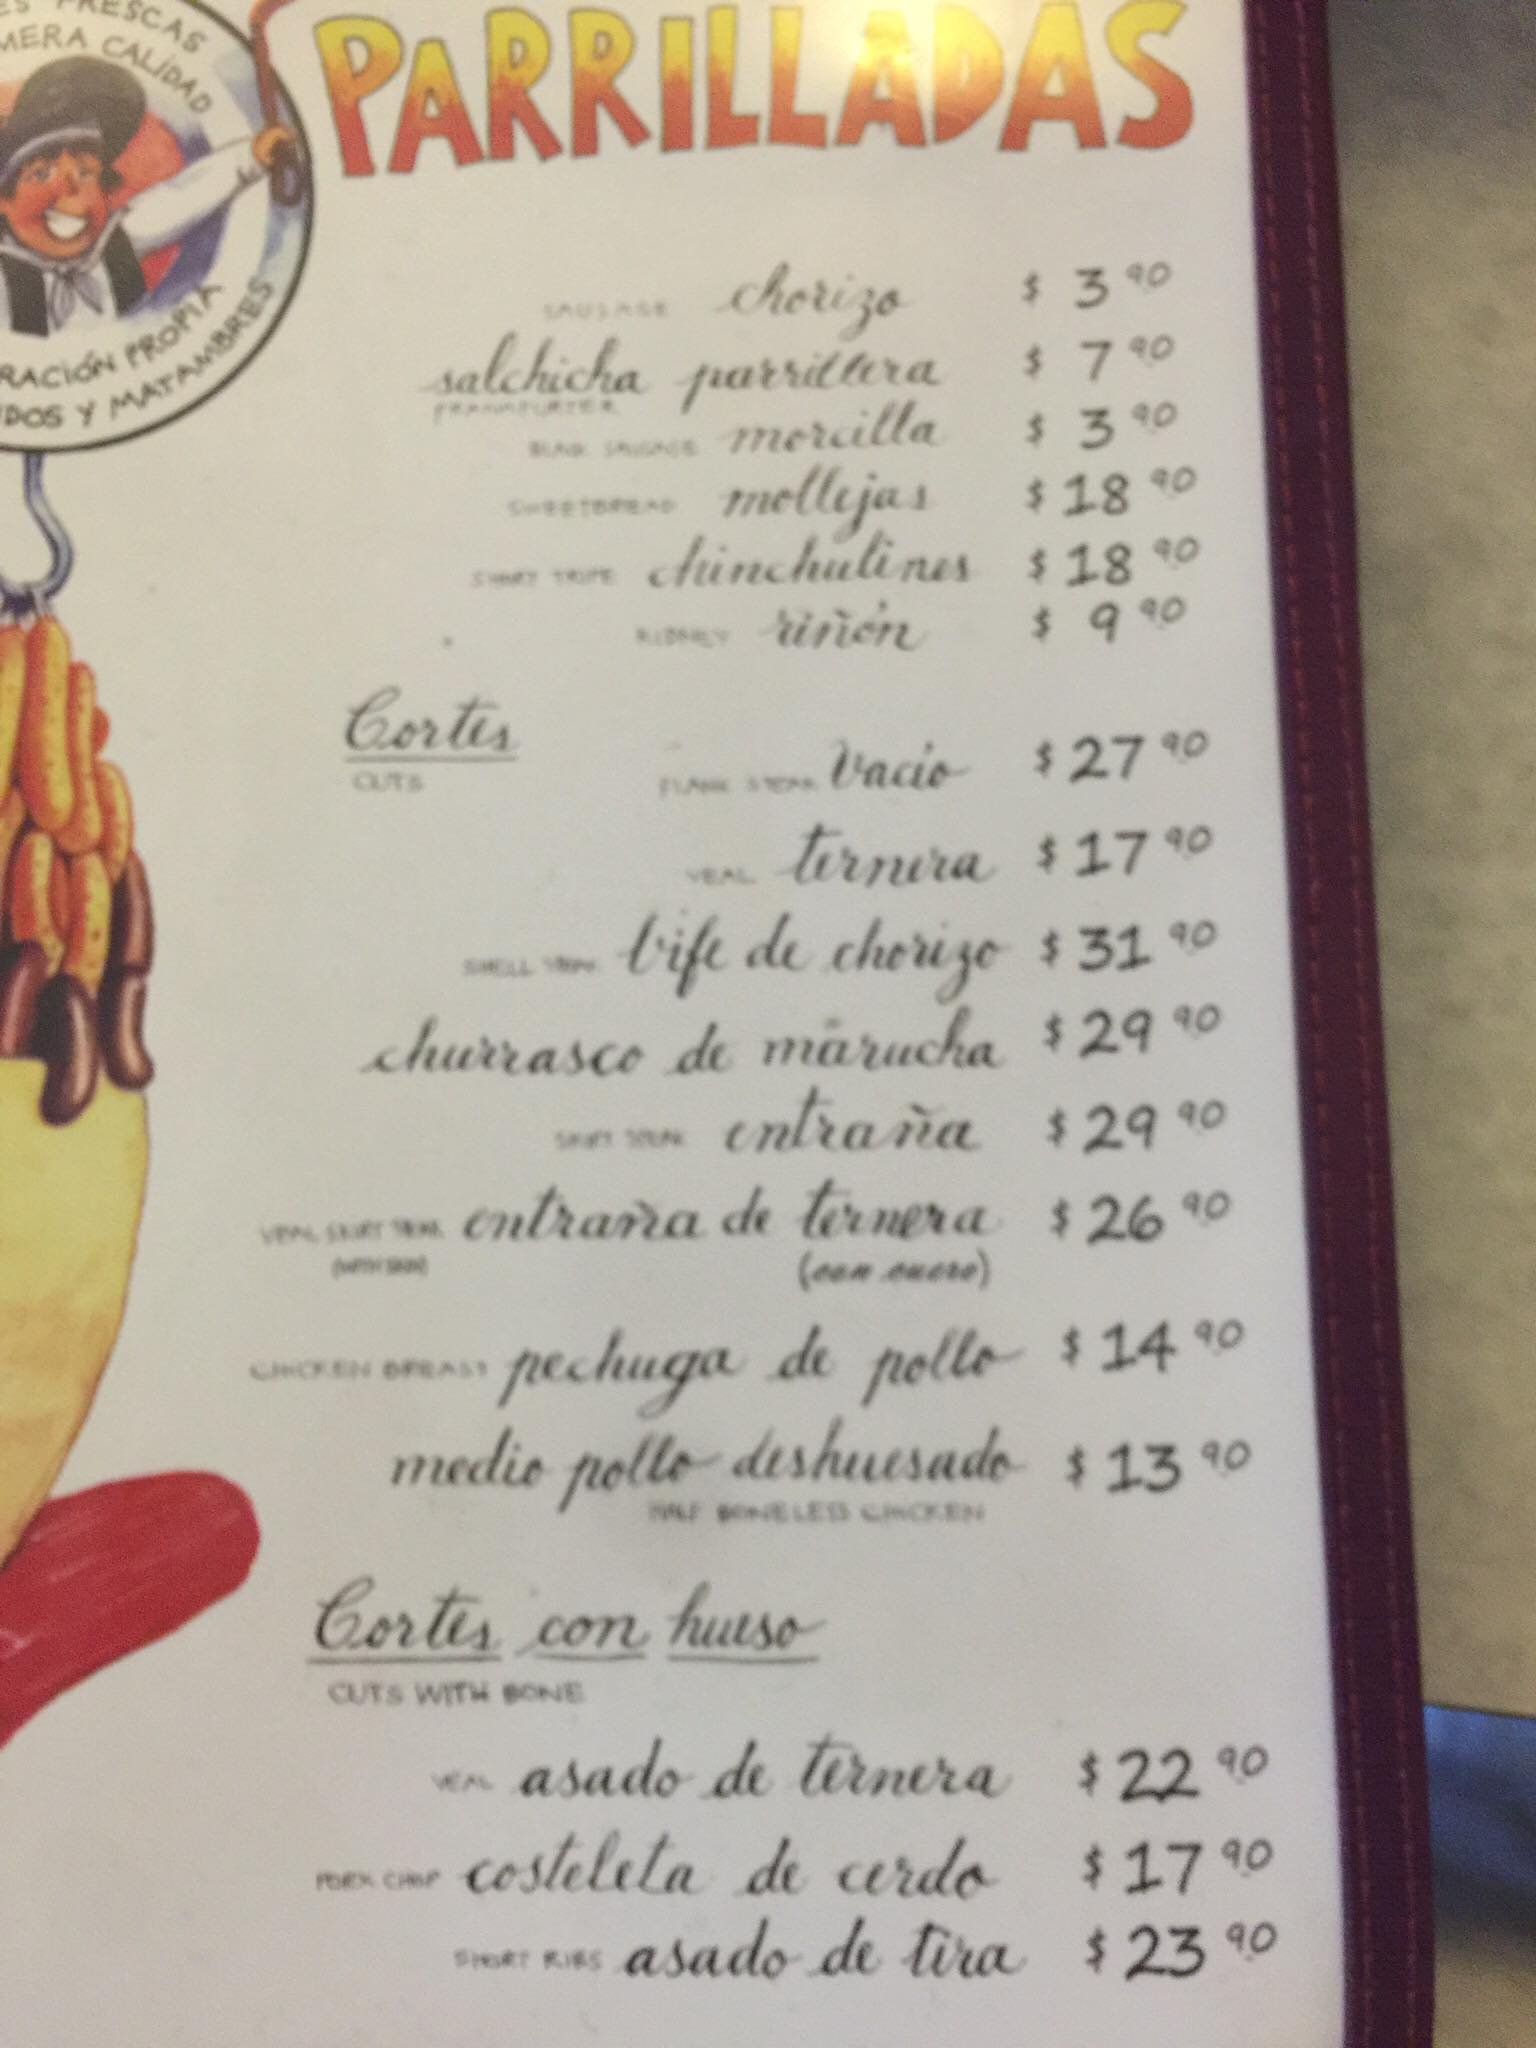 PARRILLADAS
FRESCAS
MERA CALIDAD
RACIÓN PROPIA
DOS Y MATAMBRES
SAUSAGE chorizo $ 3 90
salchicha parrillera $ 7 90
FRANKFURTER
morcilla $ 3 90
SWEETBREAD mollejas $ 18 90
SHORT TRIPE chinchulines $ 18 90
KIDNEY riñón $ 9 90
Cortes
CUTS
FLANK STEAK Vacio $ 27 90
VEAL ternera $ 17 90
SHELL STEAK bife de chorizo $ 31 90
churrasco de marucha $ 29 90
SKIRT STEAK entraña $ 29 90
VEAL SKIRT STEAK entraña de ternera $ 26 90
(WITH SKIN) (con cuero)
CHICKEN BREAST pechuga de pollo $ 14 90
medio pollo deshuesado $ 13 90
HALF BONELESS CHICKEN
Cortes con hueso
CUTS WITH BONE
VEAL asado de ternera $ 22 90
PORK CHOP costeleta de cerdo $ 17 90
SHORT RIBS asado de tira $ 23 90